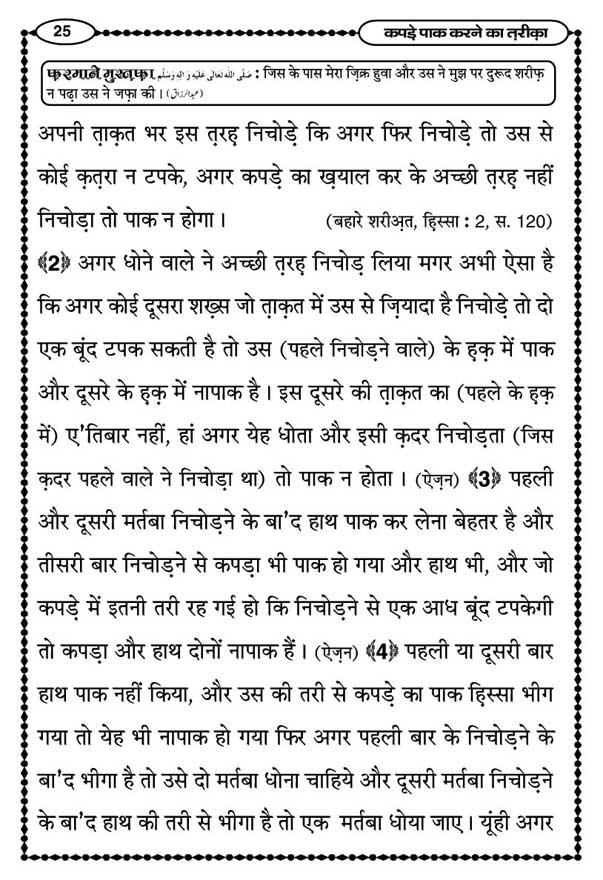 25
कपड़े पाक करने का त़रीक़ा
फ़रमाने मुस्त़फ़ा صَلَّى اللّٰهُ تَعَالٰى عَلَيْهِ وَاٰلِهٖ وَسَلَّم : जिस के पास मेरा ज़िक्र हुवा और उस ने मुझ पर दुरूद शरीफ़
न पढ़ा उस ने जफ़ा की। (عبدالرزاق)
अपनी त़ाक़त भर इस त़रह़ निचोड़े कि अगर फिर निचोड़े तो उस से
कोई क़त़रा न टपके, अगर कपड़े का ख़याल कर के अच्छी त़रह़ नहीं
निचोड़ा तो पाक न होगा। (बहारे शरीअ़त, ह़िस्सा : 2, स. 120)
﴾2﴿ अगर धोने वाले ने अच्छी त़रह़ निचोड़ लिया मगर अभी ऐसा है
कि अगर कोई दूसरा शख़्स जो त़ाक़त में उस से ज़ियादा है निचोड़े तो दो
एक बूंद टपक सकती है तो उस (पहले निचोड़ने वाले) के ह़क़ में पाक
और दूसरे के ह़क़ में नापाक है। इस दूसरे की त़ाक़त का (पहले के ह़क़
में) ए'तिबार नहीं, हां अगर येह धोता और इसी क़दर निचोड़ता (जिस
क़दर पहले वाले ने निचोड़ा था) तो पाक न होता। (ऐज़न) ﴾3﴿ पहली
और दूसरी मर्तबा निचोड़ने के बा'द हाथ पाक कर लेना बेहतर है और
तीसरी बार निचोड़ने से कपड़ा भी पाक हो गया और हाथ भी, और जो
कपड़े में इतनी तरी रह गई हो कि निचोड़ने से एक आध बूंद टपकेगी
तो कपड़ा और हाथ दोनों नापाक हैं। (ऐज़न) ﴾4﴿ पहली या दूसरी बार
हाथ पाक नहीं किया, और उस की तरी से कपड़े का पाक ह़िस्सा भीग
गया तो येह भी नापाक हो गया फिर अगर पहली बार के निचोड़ने के
बा'द भीगा है तो उसे दो मर्तबा धोना चाहिये और दूसरी मर्तबा निचोड़ने
के बा'द हाथ की तरी से भीगा है तो एक मर्तबा धोया जाए। यूंही अगर